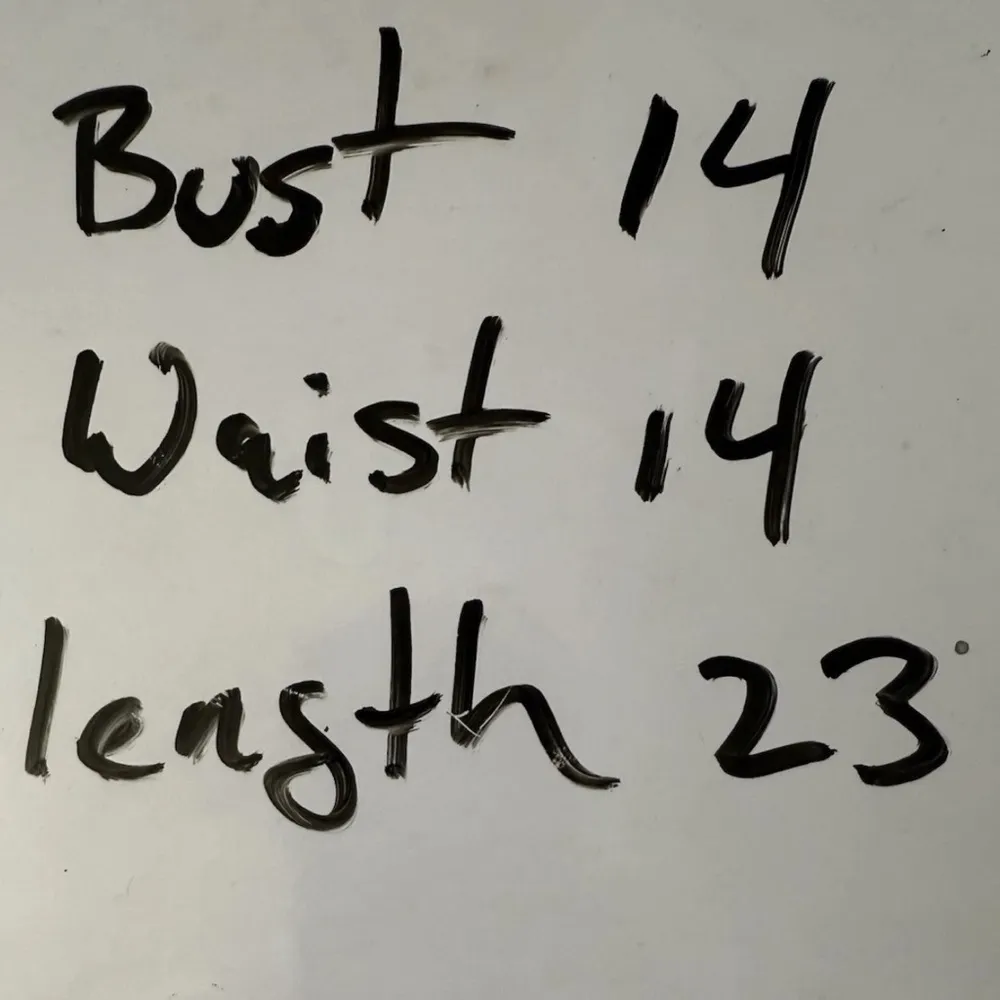 Bust 14
Waist 14
length 23